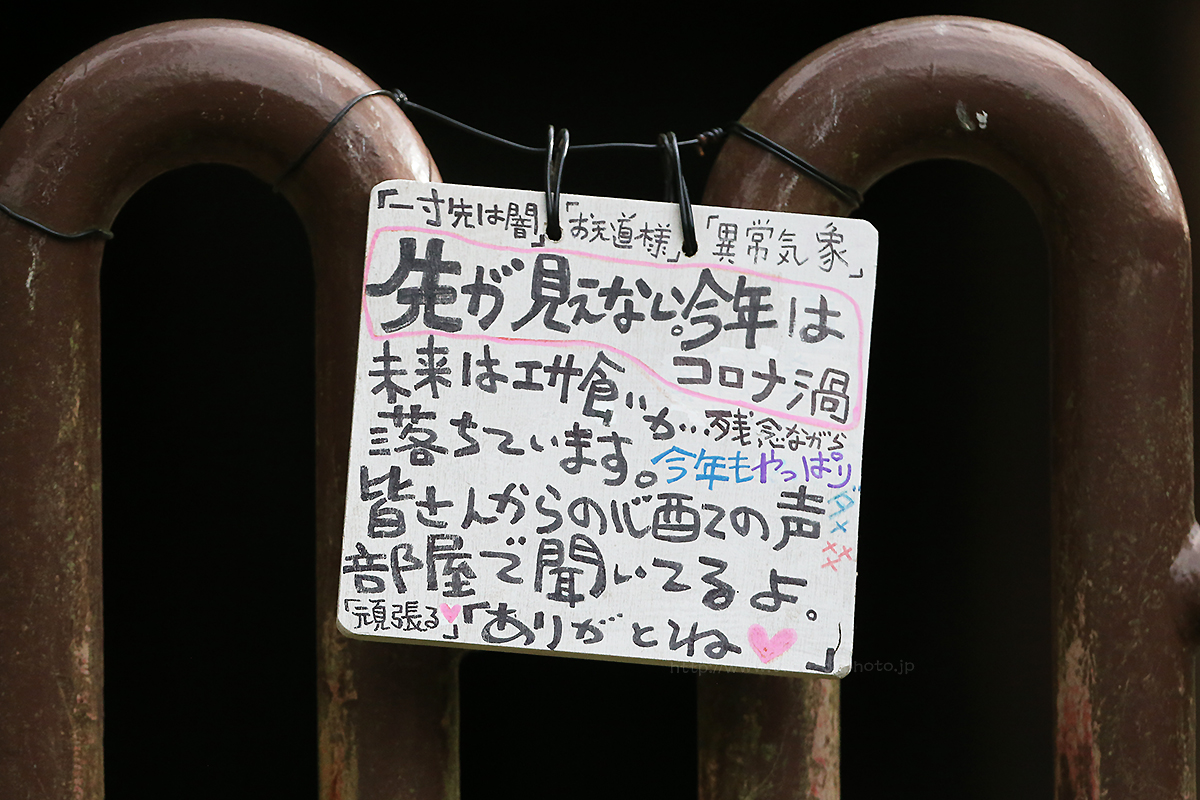 「一寸先は闇」「お天道様」「異常気象」
先が見えない。今年は
コロナ渦
未来はエサ食いが…残念ながら
落ちています。今年もやっぱり
ダメ
皆さんからの心配での声
部屋で聞いてるよ。
「頑張る♥」「ありがとね♥」